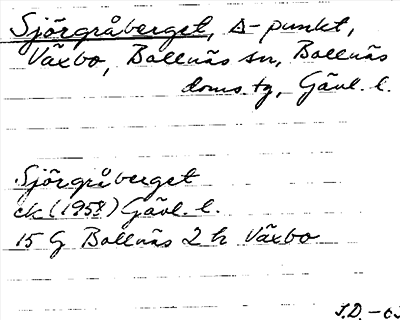 Sjörgråberget, Δ-punkt,
Växbo, Bollnäs sn, Bollnäs
doms.tg, Gävl. l.
Sjörgråberget
ek (1958) Gävl. l.
15 G Bollnäs 2 h Växbo